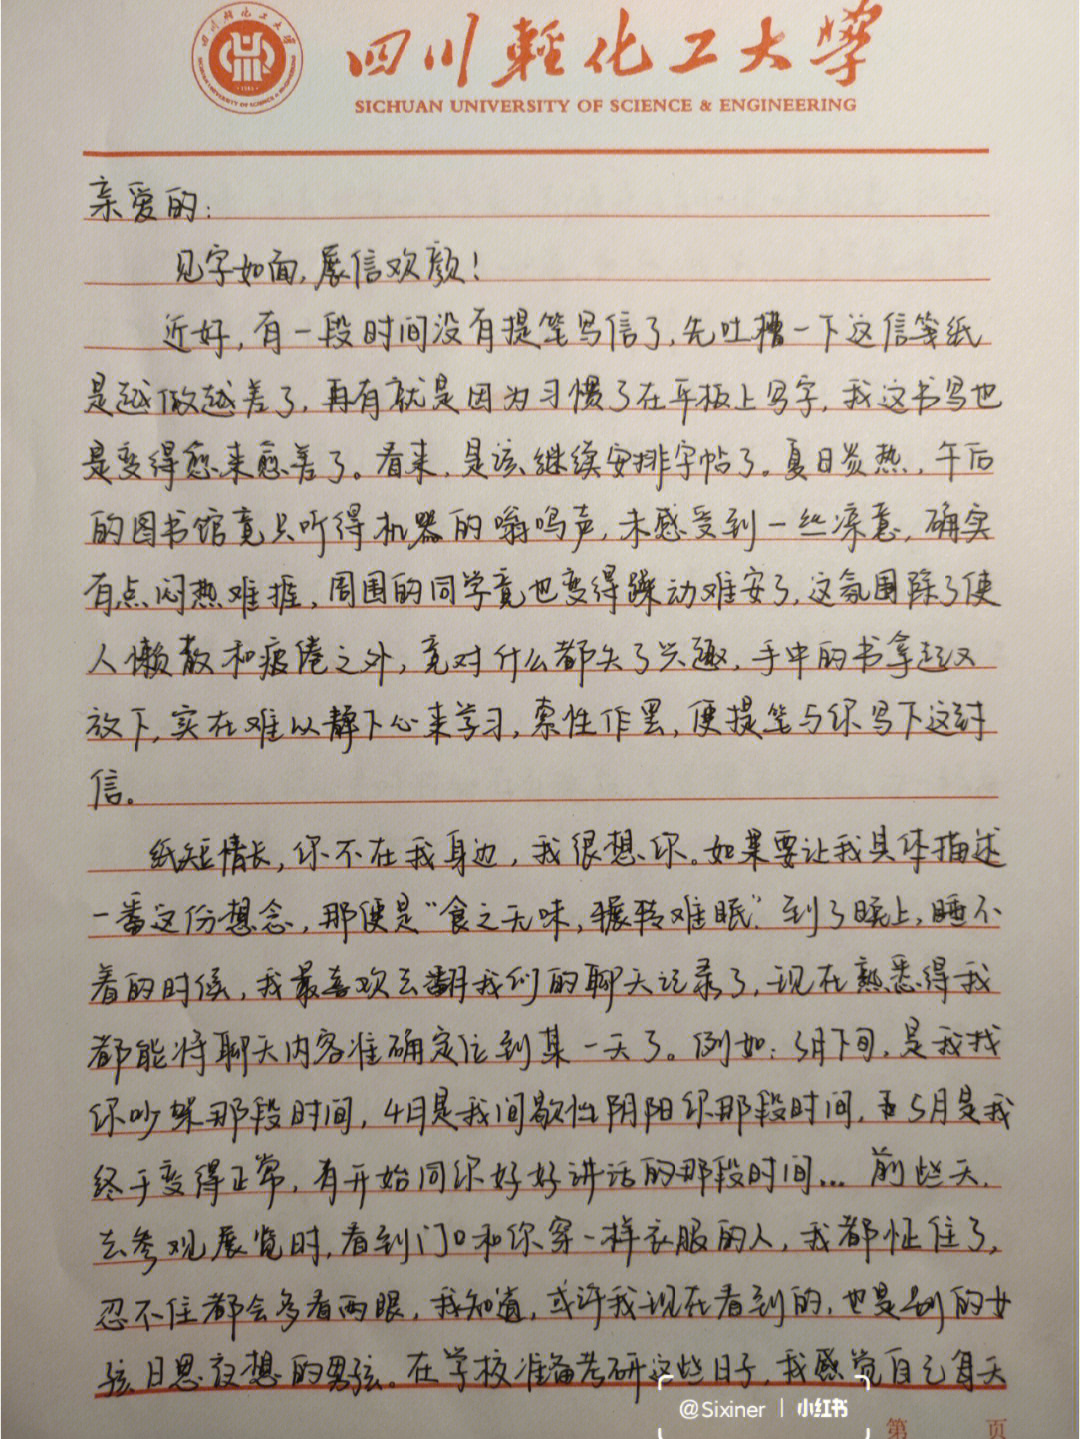 四川轻化工大学
SICHUAN UNIVERSITY OF SCIENCE & ENGINEERING
亲爱的:
见字如面,展信欢颜!
近好,有一段时间没有提笔写信了,先吐槽一下这信笺纸
是越做越差了,再有就是因为习惯了在平板上写字,我这书写也
是变得愈来愈差了。看来,是该继续安排字帖了。夏日炎热,午后
的图书馆竟只听得机器的嗡鸣声,未感受到一丝凉意,确实
有点闷热难捱,周围的同学竟也变得躁动难安了,这氛围除了使
人懒散和疲倦之外,竟对什么都失了兴趣,手中的书拿起又
放下,实在难以静下心来学习,索性作罢,便提笔与你写下这封
信。
纸短情长,你不在我身边,我很想你。如果要让我具体描述
一番这份想念,那便是“食之无味,辗转难眠”到了晚上,睡不
着的时候,我最喜欢去翻我们的聊天记录了,现在熟悉得我
都能将聊天内容准确定位到某一天了。例如:3月下旬,是我找
你吵架那段时间,4月是我间歇性阴阳你那段时间,5月是我
终于变得正常,有开始同你好好讲话的那段时间... 前些天,
去参观展览时,看到门口和你穿一样衣服的人,我都怔住了,
忍不住都会多看两眼,我知道,或许我现在看到的,也是别的女
孩日思夜想的男孩。在学校准备考研这些日子,我感觉自己每天
@Sixiner | 小红书
第 页